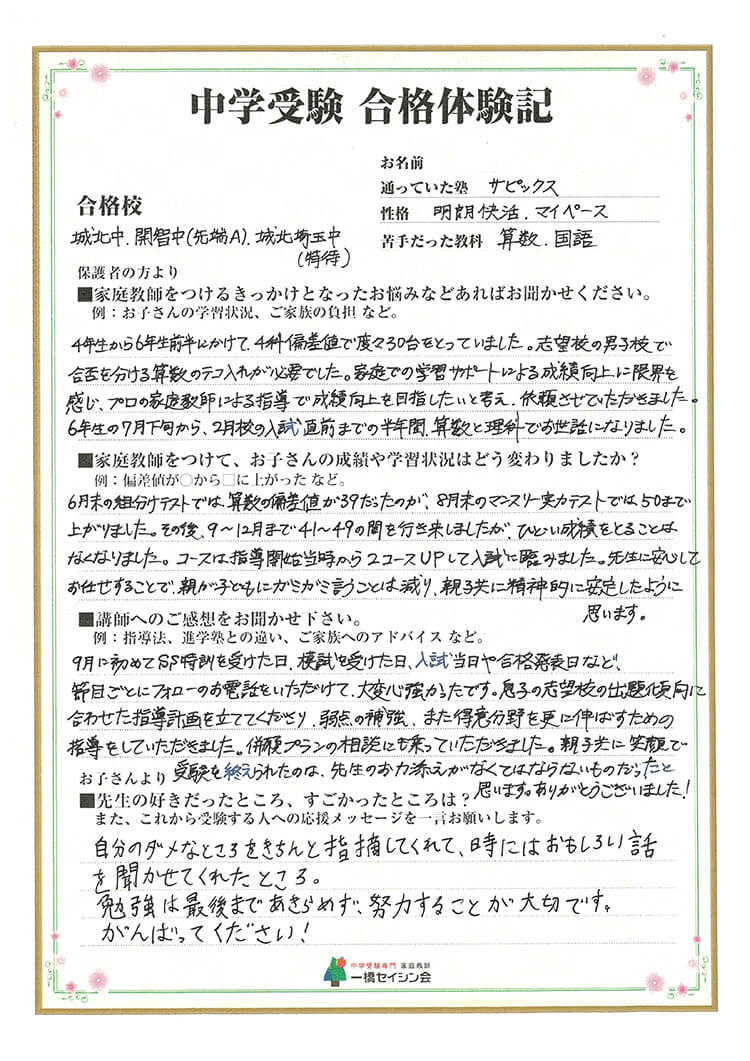 中学受験 合格体験記
お名前
通っていた塾 サピックス
合格校
性格 明朗快活、マイペース
城北中、開智中(先端A)、城北埼玉中
(特待)
苦手だった教科 算数、国語
保護者の方より
■家庭教師をつけるきっかけとなったお悩みなどあればお聞かせください。
例：お子さんの学習状況、ご家族の負担 など。
4年生から6年生前半にかけて、4科偏差値で度々30台をとっていました。志望校の男子校で
合否を分ける算数のテコ入れが必要でした。家庭での学習サポートによる成績向上に限界を
感じ、プロの家庭教師による指導で成績向上を目指したいと考え、依頼させていただきました。
6年生の7月下旬から、2月校の入試直前までの半年間、算数と理科でお世話になりました。
■家庭教師をつけて、お子さんの成績や学習状況はどう変わりましたか？
例：偏差値が○から□に上がった など。
6月末の組分けテストでは、算数の偏差値が39だったのが、8月末のマンスリー実力テストでは、50まで
上がりました。その後、9～12月まで41～49の間を行き来しましたが、ひどい成績をとることは
なくなりました。コースは指導開始当時から2コースUPして入試に臨みました。先生に安心して
お任せすることで、親が子どもにガミガミ言うことは減り、親子共に精神的に安定したように
思います。
■講師へのご感想をお聞かせ下さい。
例：指導法、進学塾との違い、ご家族へのアドバイス など。
9月に初めてSS特訓を受けた日、模試を受けた日、入試当日や合格発表日など、
節目ごとにフォローのお電話をいただけて、大変心強かったです。息子の志望校の出題傾向に
合わせた指導計画を立ててくださり、弱点の補強、また得意分野を更に伸ばすための
指導をしていただきました。併願プランの相談にも乗っていただきました。親子共に笑顔で
受験を終えられたのは、先生のお力添えがなくてはならないものだったと
思います。ありがとうございました！
お子さんより
■先生の好きだったところ、すごかったところは？
また、これから受験する人への応援メッセージを一言お願いします。
自分のダメなところをきちんと指摘してくれて、時にはおもしろい話
を聞かせてくれたところ。
勉強は最後まであきらめず、努力することが大切です。
がんばってください！
中学受験専門 家庭教師
一橋セイシン会